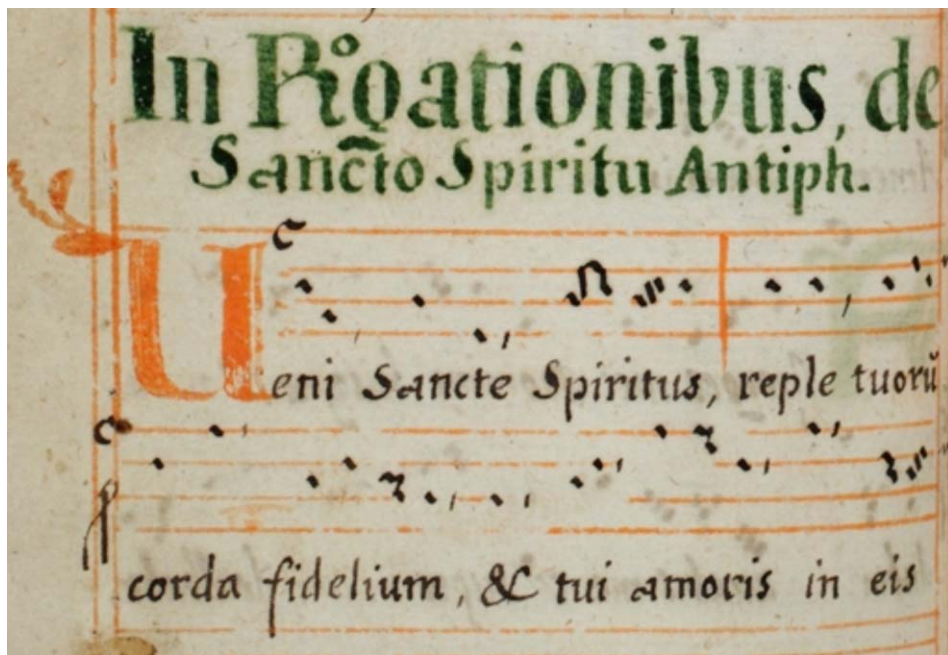 In Rºgationibus, de
Sanc̃to Spiritu Antiph.
Ueni Sancte Spiritus, reple tuorũ
corda fidelium, & tui amoris in eis